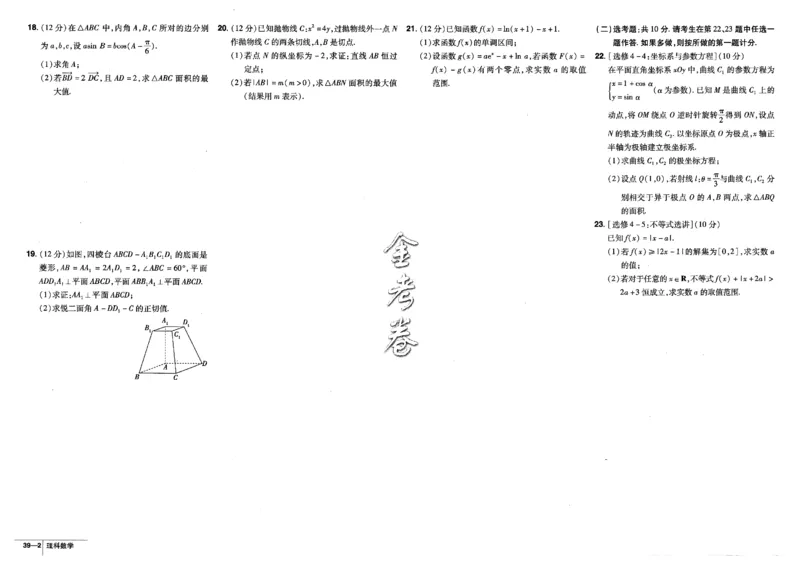 18. (12分)在△ABC中,内角A,B,C所对的边分别
为a,b,c,设asin B=bcos(A-π/6).
(1)求角A;
(2)若BD→=2DC→,且AD=2,求△ABC面积的最
大值.
19. (12分)如图,四棱台ABCD-A₁B₁C₁D₁的底面是
菱形,AB=AA₁=2A₁D₁=2,∠ABC=60°,平面
ADD₁A₁⊥平面ABCD,平面ABB₁A₁⊥平面ABCD.
(1)求证:AA₁⊥平面ABCD;
(2)求锐二面角A-DD₁-C的正切值.
A₁
D₁
B₁
C₁
A
D
B
C
20. (12分)已知抛物线C:x²=4y,过抛物线外一点N
作抛物线C的两条切线,A,B是切点.
(1)若点N的纵坐标为-2,求证:直线AB恒过
定点;
(2)若|AB|=m(m>0),求△ABN面积的最大值
(结果用m表示).
21. (12分)已知函数f(x)=ln(x+1)-x+1.
(1)求函数f(x)的单调区间;
(2)设函数g(x)=aeˣ-x+ln a,若函数F(x)=
f(x)-g(x)有两个零点,求实数a的取值
范围.
(二)选考题:共10分.请考生在第22、23题中任选一
题作答.如果多做,则按所做的第一题计分.
22. [选修4-4:坐标系与参数方程](10分)
在平面直角坐标系xOy中,曲线C₁的参数方程为
{x=1+cos α
y=sin α (α为参数).已知M是曲线C₁上的
动点,将OM绕点O逆时针旋转π/2得到ON,设点
N的轨迹为曲线C₂.以坐标原点O为极点,x轴正
半轴为极轴建立极坐标系.
(1)求曲线C₁,C₂的极坐标方程;
(2)设点Q(1,0),若射线l:θ=π/3与曲线C₁,C₂分
别相交于异于极点O的A,B两点,求△ABQ
的面积.
23. [选修4-5:不等式选讲](10分)
已知f(x)=|x-a|.
(1)若f(x)≥|2x-1|的解集为[0,2],求实数a
的值;
(2)若对于任意的x∈R,不等式f(x)+|x+2a|>
2a+3恒成立,求实数a的取值范围.
金考卷
39—2 理科数学